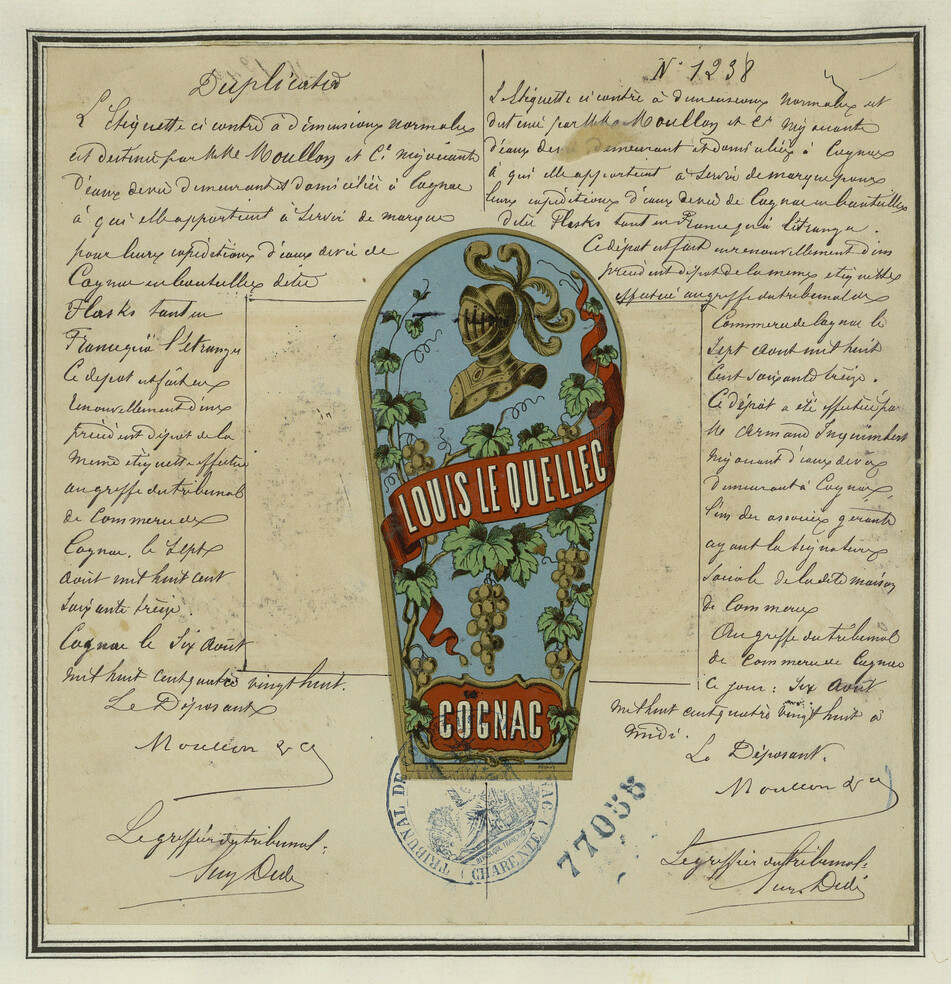 Duplicata
L'Etiquette ci contre à dimensions normales
est destinée par MM Moullon et Cie négociants
d'eaux de vie demeurant et domiciliés à Cognac
à qui elle appartient à servir de marque
pour leurs expéditions d'eaux de vie de
Cognac en bouteilles dites
Flasks tant en
France qu'à l'étranger
Ce dépôt est fait en
renouvellement d'un
précédent dépôt de la
même étiquette effectué
au greffe du tribunal
de Commerce de
Cognac, le sept
août mil huit cent
soixante treize.
Cognac le six août
mil huit cent quatre vingt huit.
Le Déposant
Moullon & Cie
Le greffier du tribunal.
N° 1238
L'étiquette ci contre à dimensions normales et
destinée par MM Moullon et Cie négociants
d'eaux de demeurant et domiciliés à Cognac
à qui elle appartient à servir de marque pour
leurs expéditions d'eaux de vie de Cognac en bouteilles
dites Flasks tant en France qu'à l'étranger.
Ce dépôt est fait en renouvellement d'un
précédent dépôt de la même étiquette
effectué au greffe du tribunal de
Commerce de Cognac le
sept août mil huit
cent soixante treize.
Ce dépôt a été effectué par
Mr Armand Inquimbert
négociant d'eaux de vie
demeurant à Cognac,
l'un des associés gérants
ayant la signature
sociale de la dite maison
de Commerce
Au greffe du tribunal
de Commerce de Cognac
ce jour: six août
mil huit cent quatre vingt huit à
midi.
Le Déposant.
Moullon & Cie
Le greffier du tribunal.
LOUIS LE QUELLEC
COGNAC
TRIBUNAL DE
(CHARENTE)
77055